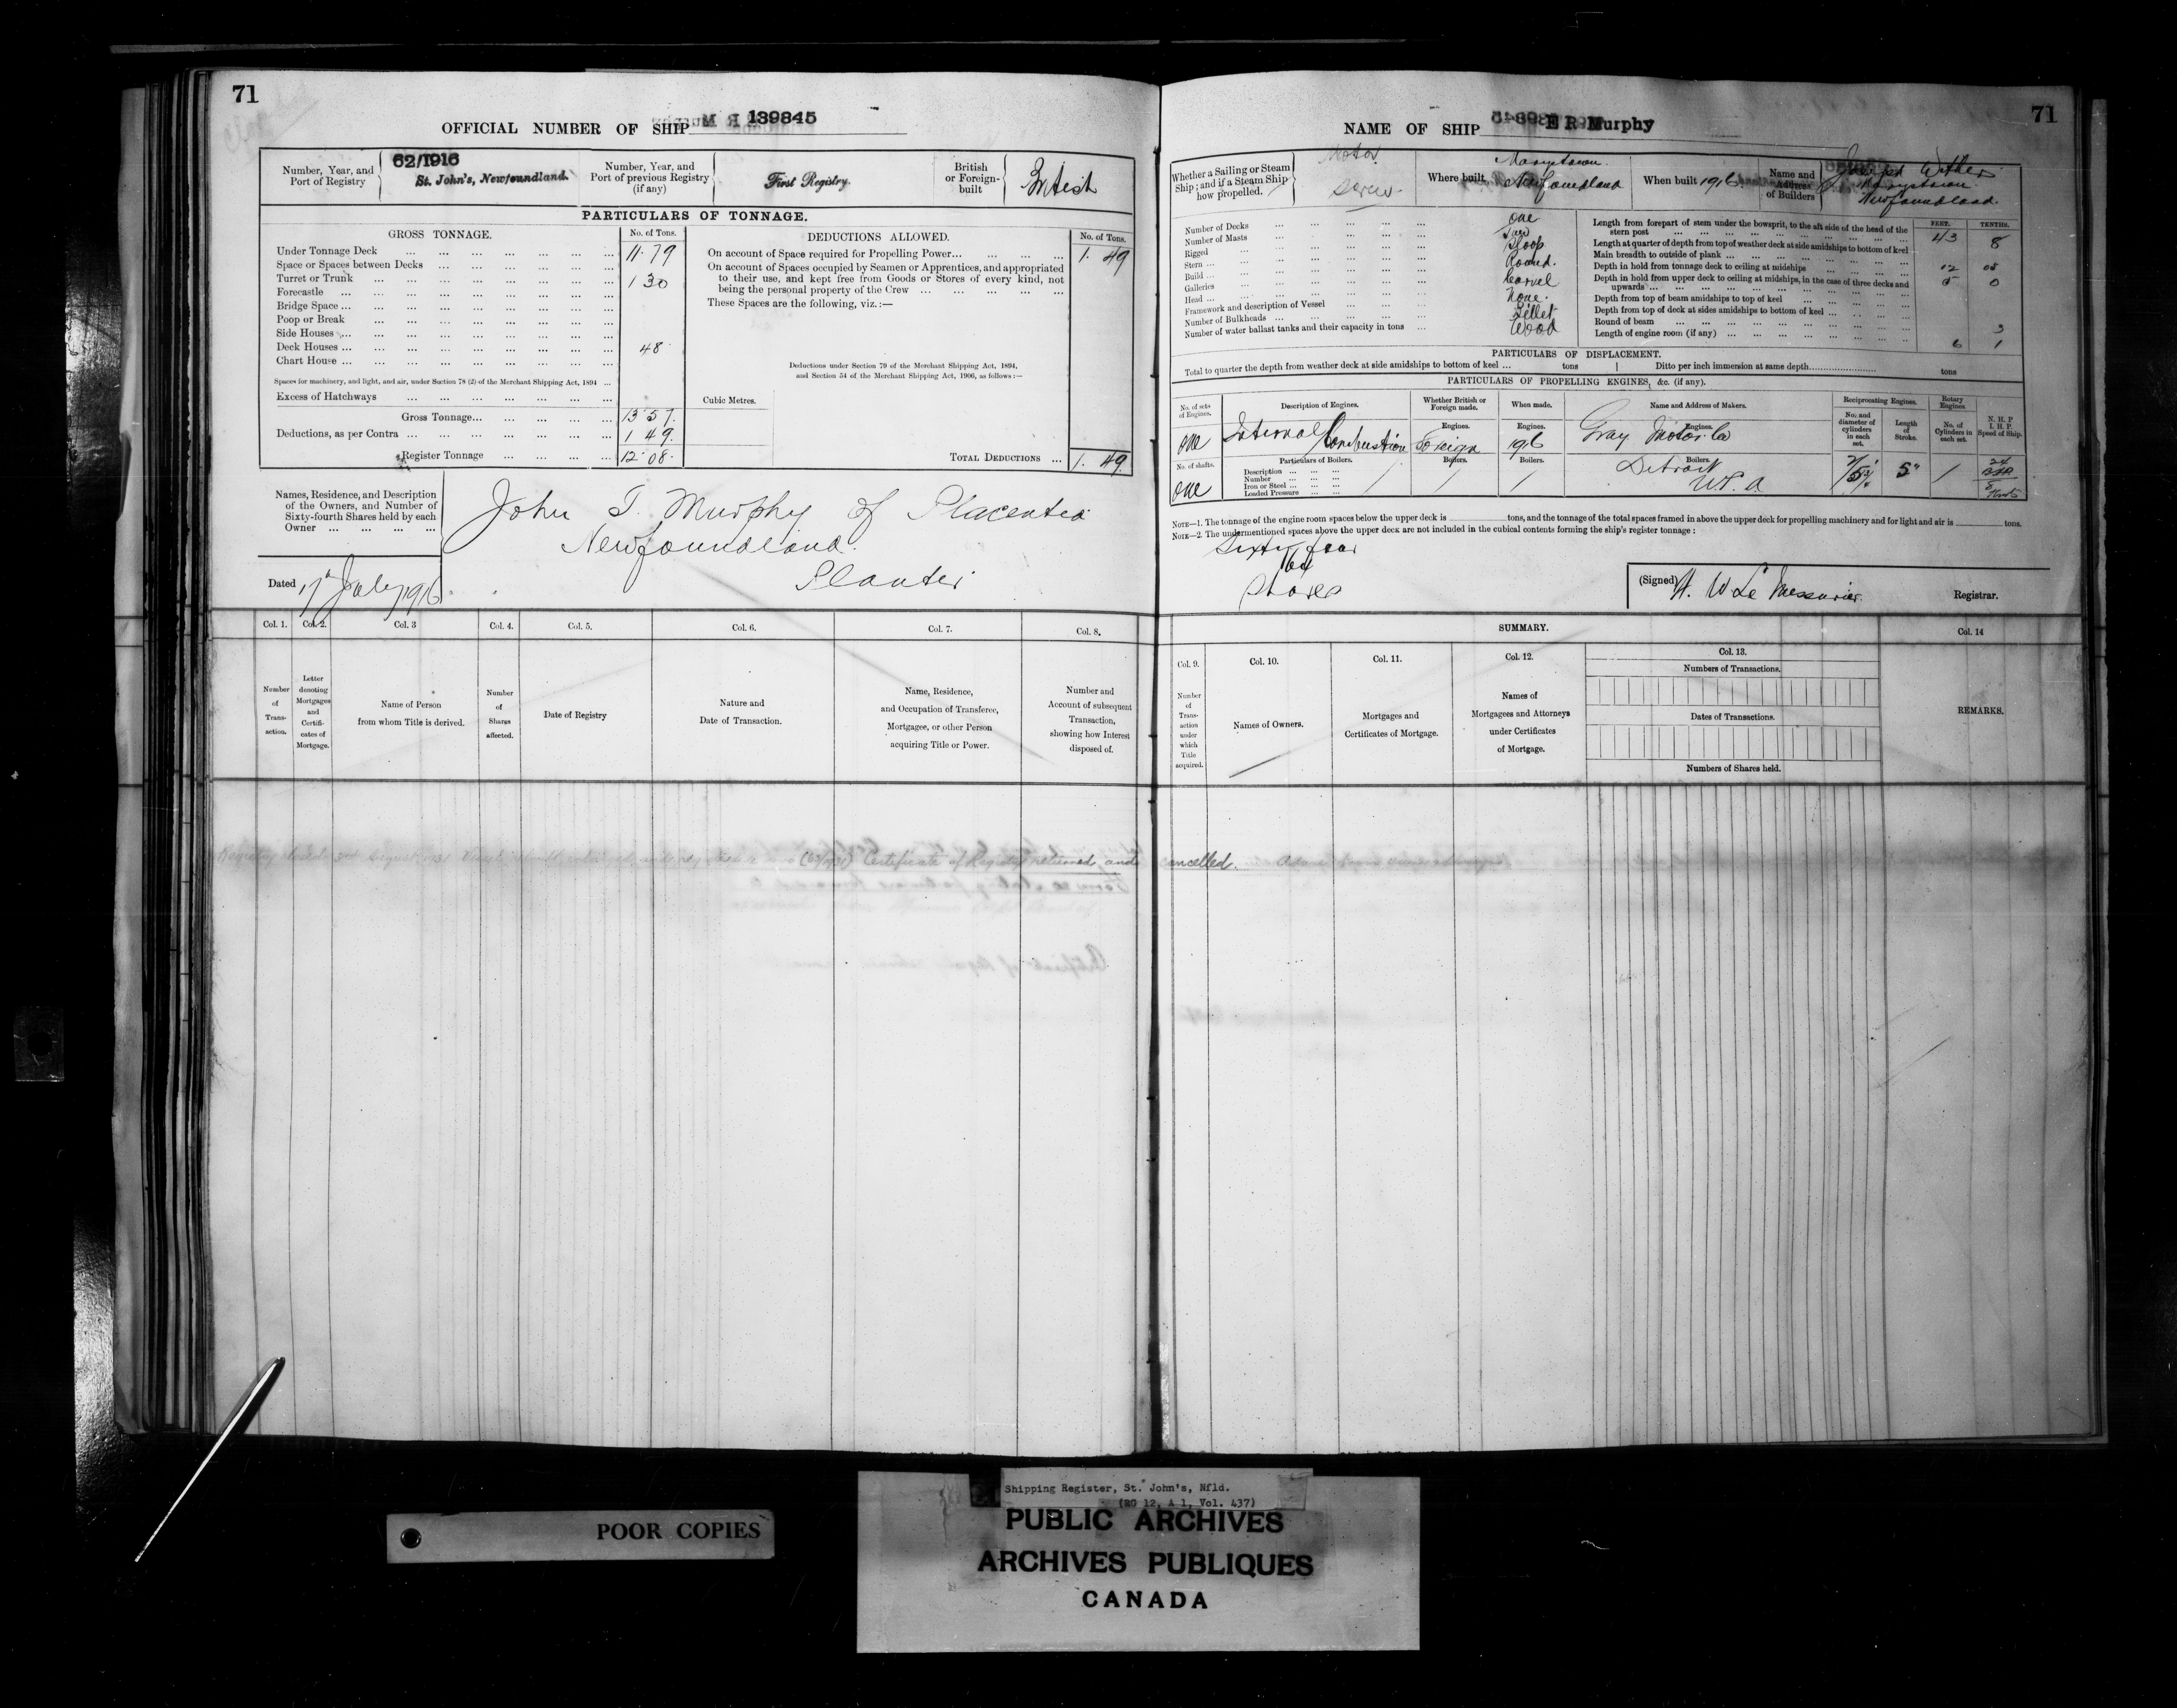 71
OFFICIAL NUMBER OF SHIP 139845
Number, Year, and Port of Registry
62/1916
St. John's, Newfoundland.
Number, Year, and Port of previous Registry (if any)
First Registry.
British or Foreign-built
British
PARTICULARS OF TONNAGE.
GROSS TONNAGE.
No. of Tons.
Under Tonnage Deck ... 11.79
Space or Spaces between Decks ...
Turret or Trunk ... 1 30
Forecastle ...
Bridge Space ...
Poop or Break ...
Side Houses ...
Deck Houses ... 48
Chart House ...
Spaces for machinery, and light, and air, under Section 78 (2) of the Merchant Shipping Act, 1894 ...
Excess of Hatchways ...
Gross Tonnage... 13 57
Deductions, as per Contra ... 1 49
Register Tonnage ... 12 08
DEDUCTIONS ALLOWED.
No. of Tons.
On account of Space required for Propelling Power... 1. 49
On account of Spaces occupied by Seamen or Apprentices, and appropriated
to their use, and kept free from Goods or Stores of every kind, not
being the personal property of the Crew ...
These Spaces are the following, viz.:—
Deductions under Section 79 of the Merchant Shipping Act, 1894,
and Section 54 of the Merchant Shipping Act, 1906, as follows:—
Cubic Metres.
TOTAL DEDUCTIONS ... 1. 49
Names, Residence, and Description
of the Owners, and Number of
Sixty-fourth Shares held by each
Owner ...
John T. Murphy of Placentia
Newfoundland.
Planter
Dated 17 July 1916
Col. 1.
Col. 2.
Col. 3
Col. 4.
Col. 5.
Col. 6.
Col. 7.
Col. 8.
Number of Transaction.
Letter denoting Mortgages and Certificates of Mortgage.
Name of Person from whom Title is derived.
Number of Shares affected.
Date of Registry
Nature and Date of Transaction.
Name, Residence, and Occupation of Transferee, Mortgagee, or other Person acquiring Title or Power.
Number and Account of subsequent Transaction, showing how Interest disposed of.
Registry closed August 1931 Certificate of Registry returned and cancelled.
71
NAME OF SHIP E R Murphy
Whether a Sailing or Steam Ship; and if a Steam Ship how propelled.
Motor
Screw
Where built
Marystown
Newfoundland
When built 1916
Name and Address of Builders
Joseph
Marystown
Newfoundland.
Number of Decks ... One
Number of Masts ... Two
Rigged ... Sloop
Stern ... Round.
Build ... Carvel
Galleries ... None.
Head ... Billet
Framework and description of Vessel ... Wood
Number of Bulkheads ...
Number of water ballast tanks and their capacity in tons ...
FEET. TENTHS.
Length from forepart of stem under the bowsprit, to the aft side of the head of the
stern post ... 43 8
Length at quarter of depth from top of weather deck at side amidships to bottom of keel
Main breadth to outside of plank ... 12 08
Depth in hold from tonnage deck to ceiling at midships ... 5 0
Depth in hold from upper deck to ceiling at midships, in the case of three decks and
upwards ...
Depth from top of beam amidships to top of keel ...
Depth from top of deck at sides amidships to bottom of keel ...
Round of beam ... 3
Length of engine room (if any) ... 6 1
PARTICULARS OF DISPLACEMENT.
Total to quarter the depth from weather deck at side amidships to bottom of keel ... tons
Ditto per inch immersion at same depth... tons
PARTICULARS OF PROPELLING ENGINES, &c. (if any).
No. of sets of Engines.
Description of Engines.
Whether British or Foreign made.
When made.
Name and Address of Makers.
Reciprocating Engines.
Rotary Engines
No. and diameter of cylinders in each set.
Length of Stroke.
No. of Cylinders in each set.
N. H. P
I. H. P.
Speed of Ship.
One
Internal Combustion
Engines.
Foreign
Engines.
1916
Engines.
Gray Motor Co
Detroit
U.S.A
No. of shafts.
One
Particulars of Boilers.
Description ...
Number ...
Iron or Steel ...
Loaded Pressure ...
Boilers.
Boilers.
Boilers.
5"
NOTE—1. The tonnage of the engine room spaces below the upper deck is tons, and the tonnage of the total spaces framed in above the upper deck for propelling machinery and for light and air is tons.
NOTE—2. The undermentioned spaces above the upper deck are not included in the cubical contents forming the ship's register tonnage:
Sixty four
64
Shares
(Signed) H. W Le Messurier
Registrar.
SUMMARY.
Col. 9.
Col. 10.
Col. 11.
Col. 12.
Col. 13.
Col. 14
Number of Transaction under which Title acquired.
Names of Owners.
Mortgages and Certificates of Mortgage.
Names of Mortgagees and Attorneys under Certificates of Mortgage.
Numbers of Transactions.
Dates of Transactions.
Numbers of Shares held.
REMARKS.
POOR COPIES
Shipping Register, St. John's, Nfld.
(RG 12, A 1, Vol. 437)
PUBLIC ARCHIVES
ARCHIVES PUBLIQUES
CANADA